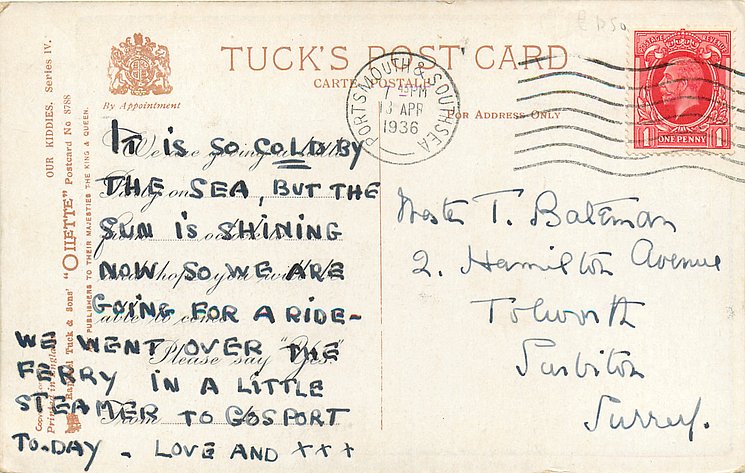 TUCK'S POST CARD
CARTE POSTALE
By Appointment
FOR ADDRESS ONLY
OUR KIDDIES. Series IV.
"OILETTE" Postcard No 8788
Raphael Tuck & Sons'
PUBLISHERS TO THEIR MAJESTIES THE KING & QUEEN.
Printed in England
PORTSMOUTH & SOUTHSEA
13 APR
1936
1 ONE PENNY 1
POSTAGE REVENUE
We are going to
from o'clock
and hope you will be
able to come
Please say "Yes."
From
IT IS SO COLD BY
THE SEA, BUT THE
SUN IS SHINING
NOW SO WE ARE
GOING FOR A RIDE-
WE WENT OVER THE
FERRY IN A LITTLE
STEAMER TO GOSPORT
TO-DAY - LOVE AND XXX
Master T. Bateman
2. Hamilton Avenue
Tolworth
Surbiton
Surrey.